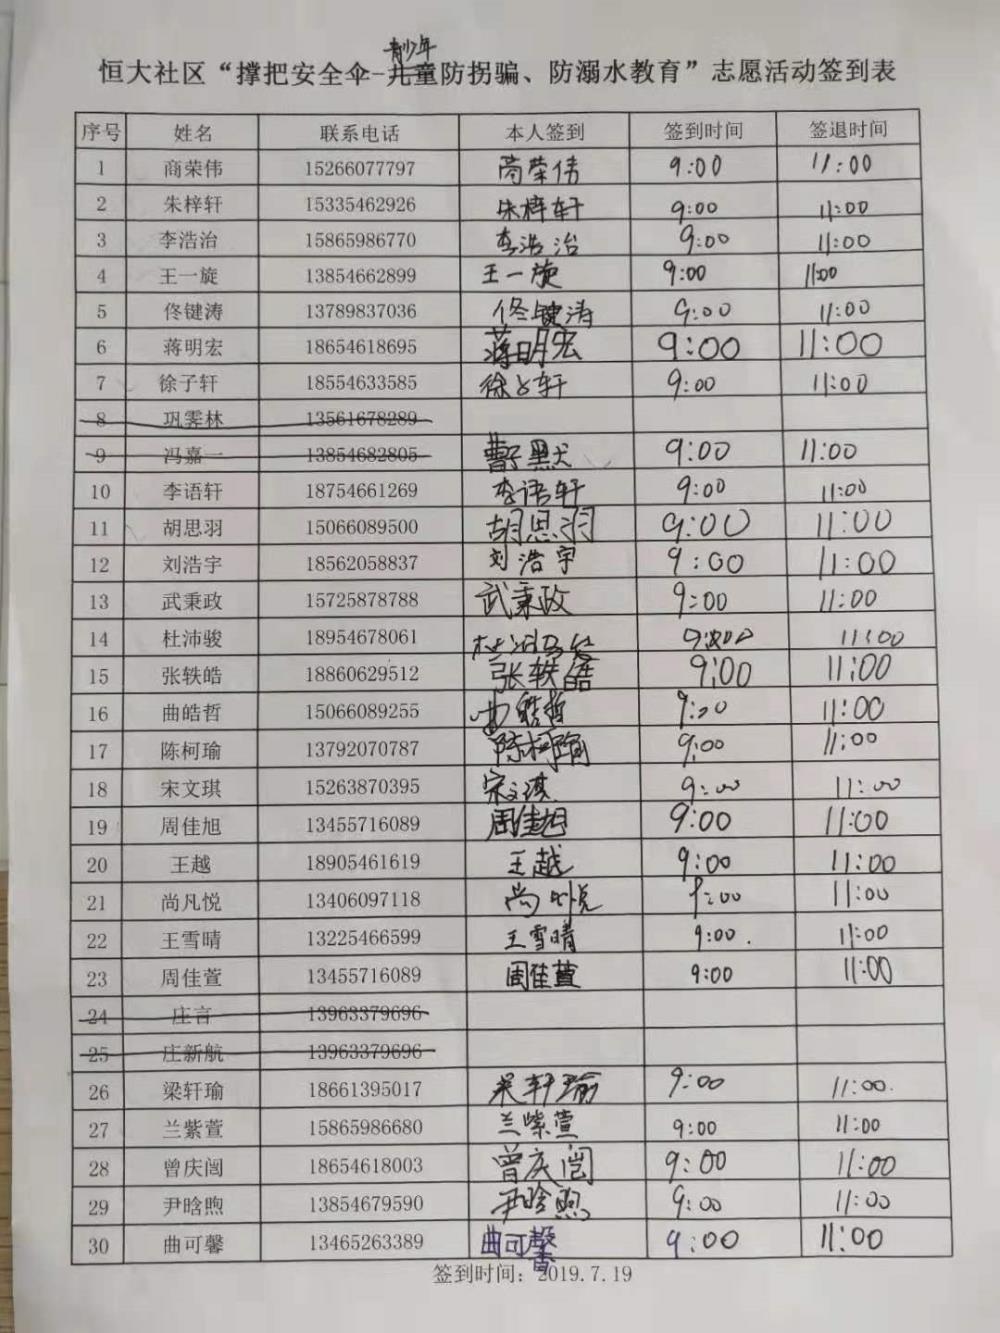 青少年
恒大社区“撑把安全伞-儿童防拐骗、防溺水教育”志愿活动签到表
序号 姓名 联系电话 本人签到 签到时间 签退时间
1 商荣伟 15266077797 商荣伟 9:00 11:00
2 朱梓轩 15335462926 朱梓轩 9:00 11:00
3 李浩治 15865986770 李浩治 9:00 11:00
4 王一旋 13854662899 王一旋 9:00 11:00
5 佟键涛 13789837036 佟键涛 9:00 11:00
6 蒋明宏 18654618695 蒋明宏 9:00 11:00
7 徐子轩 18554633585 徐子轩 9:00 11:00
8 巩霁林 13561678289
9 冯嘉一 13854682805 曹子默 9:00 11:00
10 李语轩 18754661269 李语轩 9:00 11:00
11 胡思羽 15066089500 胡思羽 9:00 11:00
12 刘浩宇 18562058837 刘浩宇 9:00 11:00
13 武秉政 15725878788 武秉政 9:00 11:00
14 杜沛骏 18954678061 杜沛骏 9:00 11:00
15 张轶皓 18860629512 张轶皓 9:00 11:00
16 曲皓哲 15066089255 曲皓哲 9:20 11:00
17 陈柯瑜 13792070787 陈柯瑜 9:00 11:00
18 宋文琪 15263870395 宋文琪 9:00 11:00
19 周佳旭 13455716089 周佳旭 9:00 11:00
20 王越 18905461619 王越 9:00 11:00
21 尚凡悦 13406097118 尚凡悦 9:00 11:00
22 王雪晴 13225466599 王雪晴 9:00. 11:00
23 周佳萱 13455716089 周佳萱 9:00 11:00
24 庄言 13963379696
25 庄新航 13963379696
26 梁轩瑜 18661395017 梁轩瑜 9:00 11:00.
27 兰紫萱 15865986680 兰紫萱 9:00 11:00
28 曾庆闿 18654618003 曾庆闿 9:00 11:00
29 尹晗煦 13854679590 尹晗煦 9:00 11:00
30 曲可馨 13465263389 曲可馨 9:00 11:00
签到时间：2019.7.19